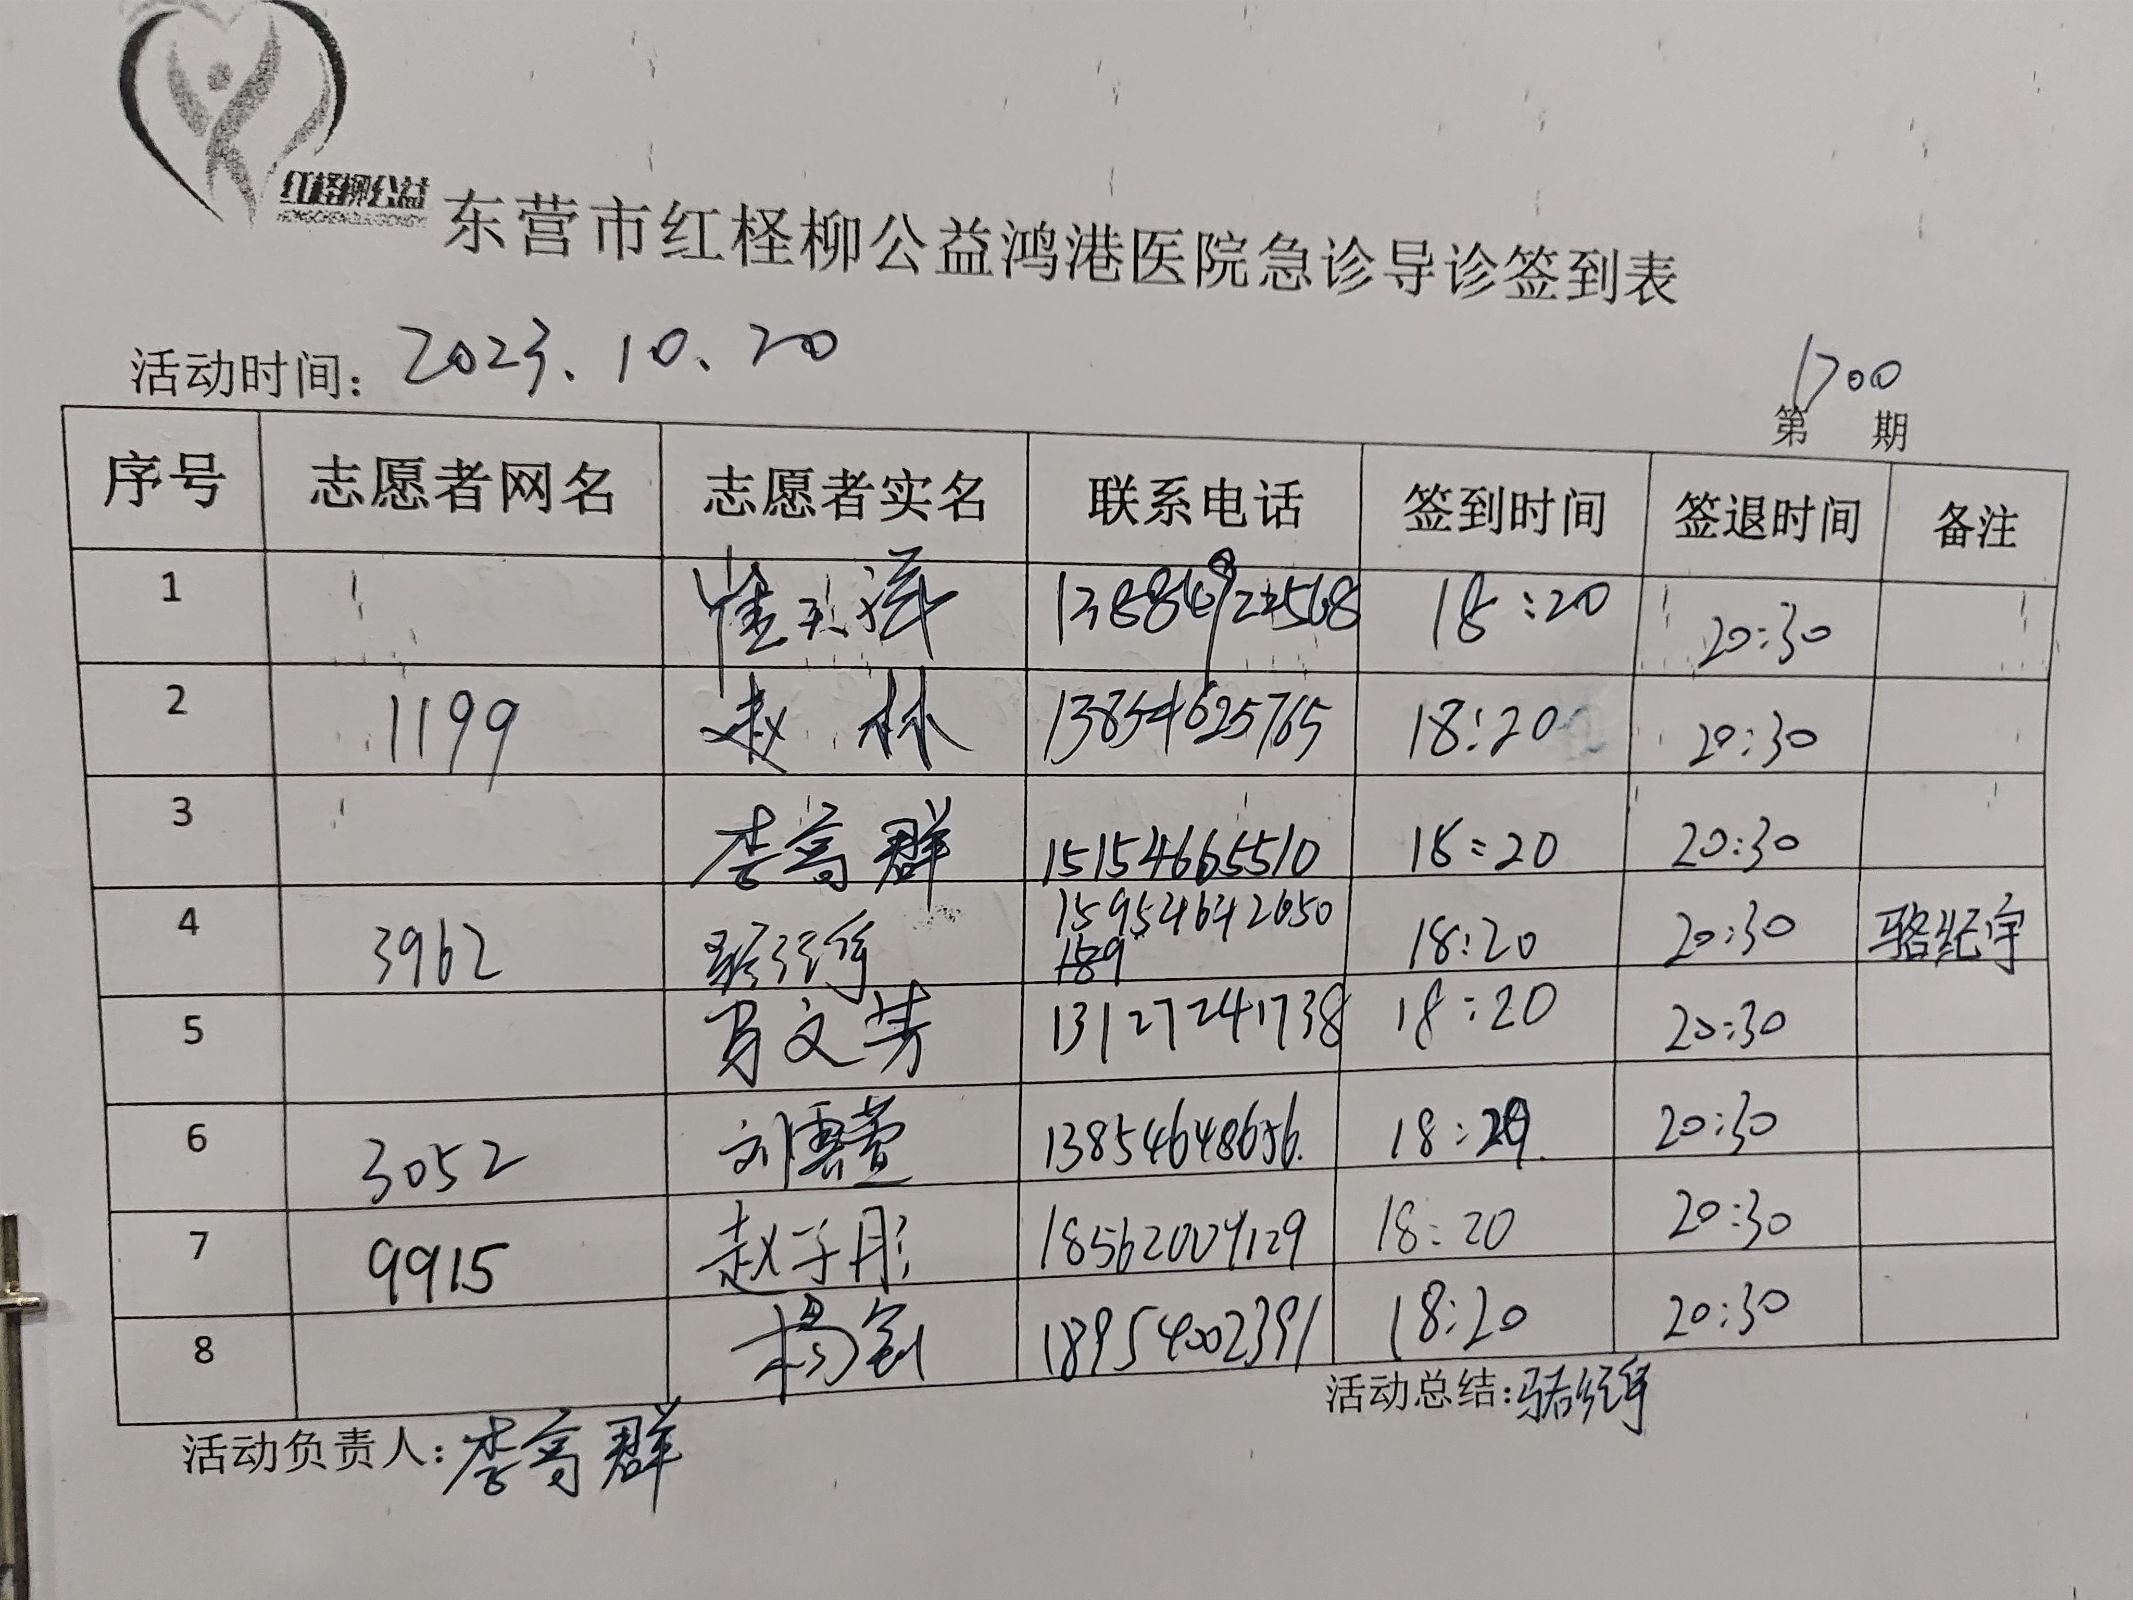 红柽柳公益
HONGCHENGLIUGONGYI
东营市红柽柳公益鸿港医院急诊导诊签到表
活动时间：2023.10.20
1700
第 期
序号 志愿者网名 志愿者实名 联系电话 签到时间 签退时间 备注
1 18:20 20:30
2 1199 赵林 13854625765 18:20 20:30
3 李高群 15154665510 18:20 20:30
4 3962 骆纪宇 15954642650 18:20 20:30 骆纪宇
189
5 13127241738 18:20 20:30
6 3052 13854648656 18:20 20:30
7 9915 赵子彤 18562009129 18:20 20:30
8 杨剑 18954002391 18:20 20:30
活动总结：骆纪宇
活动负责人：李高群